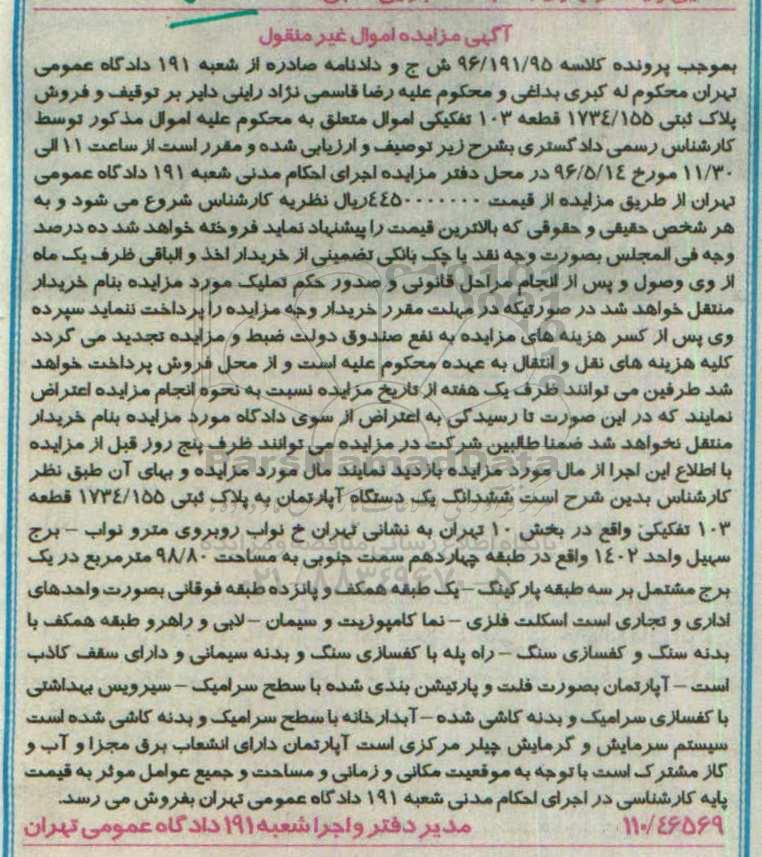 آگهی مزایده اموال غیر منقول
بموجب پرونده کلاسه ۹۶/۱۹۱/۹۵ ش ج و دادنامه صادره از شعبه ۱۹۱ دادگاه عمومی
تهران محکوم له کبری بداغی و محکوم علیه رضا قاسمی نژاد راینی دایر بر توقیف و فروش
پلاک ثبتی ۱۷۳٤/۱۵۵ قطعه ۱۰۳ تفکیکی اموال متعلق به محکوم علیه اموال مذکور توسط
کارشناس رسمی دادگستری بشرح زیر توصیف و ارزیابی شده و مقرر است از ساعت ۱۱ الی
۱۱/۳۰ مورخ ۹۶/۵/۱٤ در محل دفتر مزایده اجرای احکام مدنی شعبه ۱۹۱ دادگاه عمومی
تهران از طریق مزایده از قیمت ٤٤۵۰۰۰۰۰۰۰ریال نظریه کارشناس شروع می شود و به
هر شخص حقیقی و حقوقی که بالاترین قیمت را پیشنهاد نماید فروخته خواهد شد ده درصد
وجه فی المجلس بصورت وجه نقد یا چک بانکی تضمینی از خریدار اخذ و الباقی ظرف یک ماه
از وی وصول و پس از انجام مراحل قانونی و صدور حکم تملیک مورد مزایده بنام خریدار
منتقل خواهد شد در صورتیکه در مهلت مقرر خریدار وجه مزایده را پرداخت ننماید سپرده
وی پس از کسر هزینه های مزایده به نفع صندوق دولت ضبط و مزایده تجدید می گردد
کلیه هزینه های نقل و انتقال به عهده محکوم علیه است و از محل فروش پرداخت خواهد
شد طرفین می توانند ظرف یک هفته از تاریخ مزایده نسبت به نحوه انجام مزایده اعتراض
نمایند که در این صورت تا رسیدگی به اعتراض از سوی دادگاه مورد مزایده بنام خریدار
منتقل نخواهد شد ضمنا طالبین شرکت در مزایده می توانند ظرف پنج روز قبل از مزایده
با اطلاع این اجرا از مال مورد مزایده بازدید نمایند مال مورد مزایده و بهای آن طبق نظر
کارشناس بدین شرح است ششدانگ یک دستگاه آپارتمان به پلاک ثبتی ۱۷۳٤/۱۵۵ قطعه
۱۰۳ تفکیکی واقع در بخش ۱۰ تهران به نشانی تهران خ نواب روبروی مترو نواب – برج
سهیل واحد ۱٤۰۲ واقع در طبقه چهاردهم سمت جنوبی به مساحت ۹۸/۸۰ مترمربع در یک
برج مشتمل بر سه طبقه پارکینگ – یک طبقه همکف و پانزده طبقه فوقانی بصورت واحدهای
اداری و تجاری است اسکلت فلزی – نما کامپوزیت و سیمان – لابی و راهرو طبقه همکف با
بدنه سنگ و کفسازی سنگ – راه پله با کفسازی سنگ و بدنه سیمانی و دارای سقف کاذب
است – آپارتمان بصورت فلت و پارتیشن بندی شده با سطح سرامیک – سیرویس بهداشتی
با کفسازی سرامیک و بدنه کاشی شده – آبدارخانه با سطح سرامیک و بدنه کاشی شده است
سیستم سرمایش و گرمایش چیلر مرکزی است آپارتمان دارای انشعاب برق مجزا و آب و
گاز مشترک است با توجه به موقعیت مکانی و زمانی و مساحت و جمیع عوامل موثر به قیمت
پایه کارشناسی در اجرای احکام مدنی شعبه ۱۹۱ دادگاه عمومی تهران بفروش می رسد.
۱۱۰/٤۶۵۶۹ مدیر دفتر و اجرا شعبه ۱۹۱ دادگاه عمومی تهران
ParsNamadData